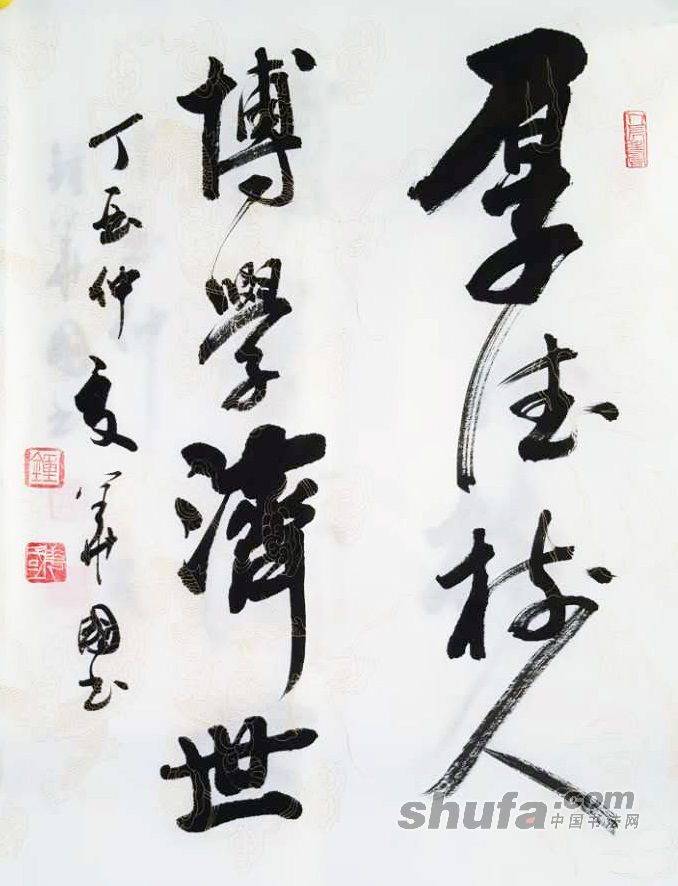 厚德树人
博學濟世
丁酉仲夏華國书
鍾
shufa.com
中国书法网